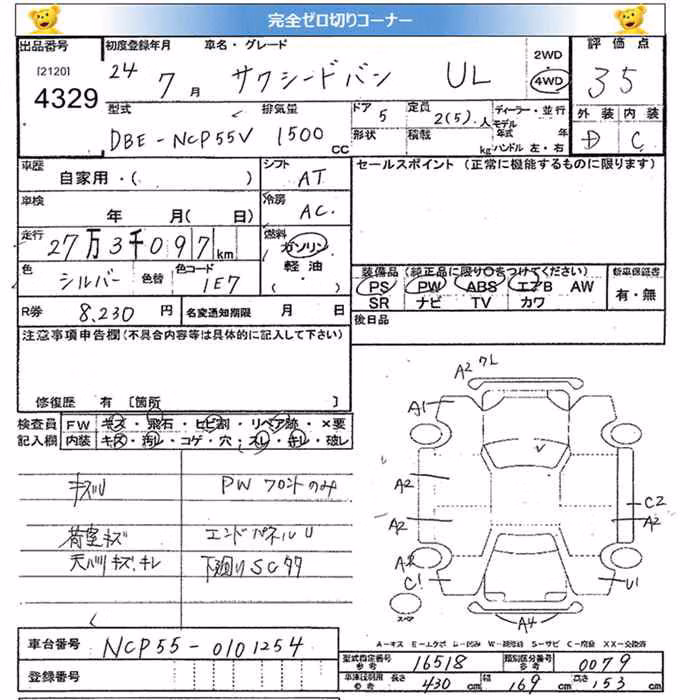 完全ゼロ切りコーナー
出品番号 初度登録年月 車名・グレード 2WD 評価点
[2120] 24 7月 サクシードバン UL 4WD 35
4329 型式 排気量 ドア 5 定員 2(5).人 ディーラー・並行 外装 内装
DBE-NCP55V 1500 CC 形状 積載 kg モデル年式 年 D C
ハンドル 左・右
車歴 自家用・( ) シフト AT セールスポイント (正常に機能するものに限ります)
車検 年 月( 日) 冷房 AC.
走行 27万3千097km 燃料 ガソリン
軽油
( ・ )
色 シルバー 色替 色コード 1E7 装備品 (純正品に限り○をつけてください) 新車保証書
PS PW ABS エアB AW 有・無
SR ナビ TV カワ
R券 8.230 円 名変通知期限 月 日 後日品
注意事項申告欄(不具合内容等は具体的に記入して下さい)
修復歴 有 [箇所 ]
検査員 FW キズ・飛石・ヒビ割・リペア跡・×要
記入欄 内装 キズ・汚レ・コゲ・穴・スレ・キレ・破レ
キズU PW フロントのみ
荷室キズ エンドパネルU
天バリキズ、キレ 下廻りSC
A2
A1
A2
A2 C2
A2
A2
C1 U1
スペア A4
A-キズ E-エクボ U-凹み W-補修跡 S-サビ C-腐食 XX-交換済
車台番号 NCP55-0101254
型式指定番号 参考 16518 類別区分番号 参考 0079
登録番号
車庫証明用 参考 長さ 430 cm 幅 169 cm 高さ 153 cm